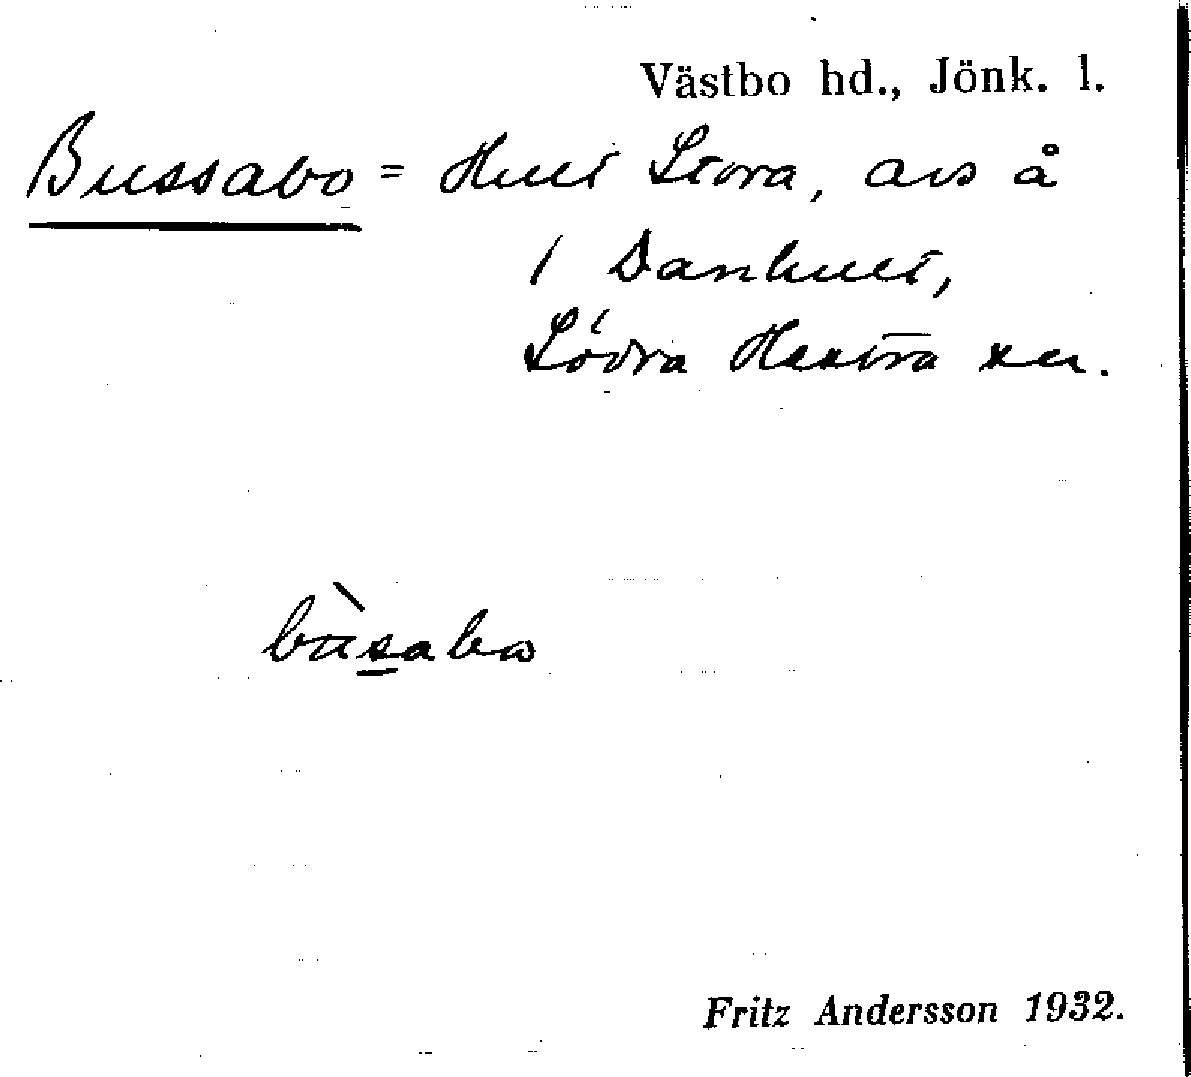 Västbo hd., Jönk. l.
Bussabo = Hult Stora, avs å
1 Danhult,
Södra Hestra sn.
bùsabo
Fritz Andersson 1932.